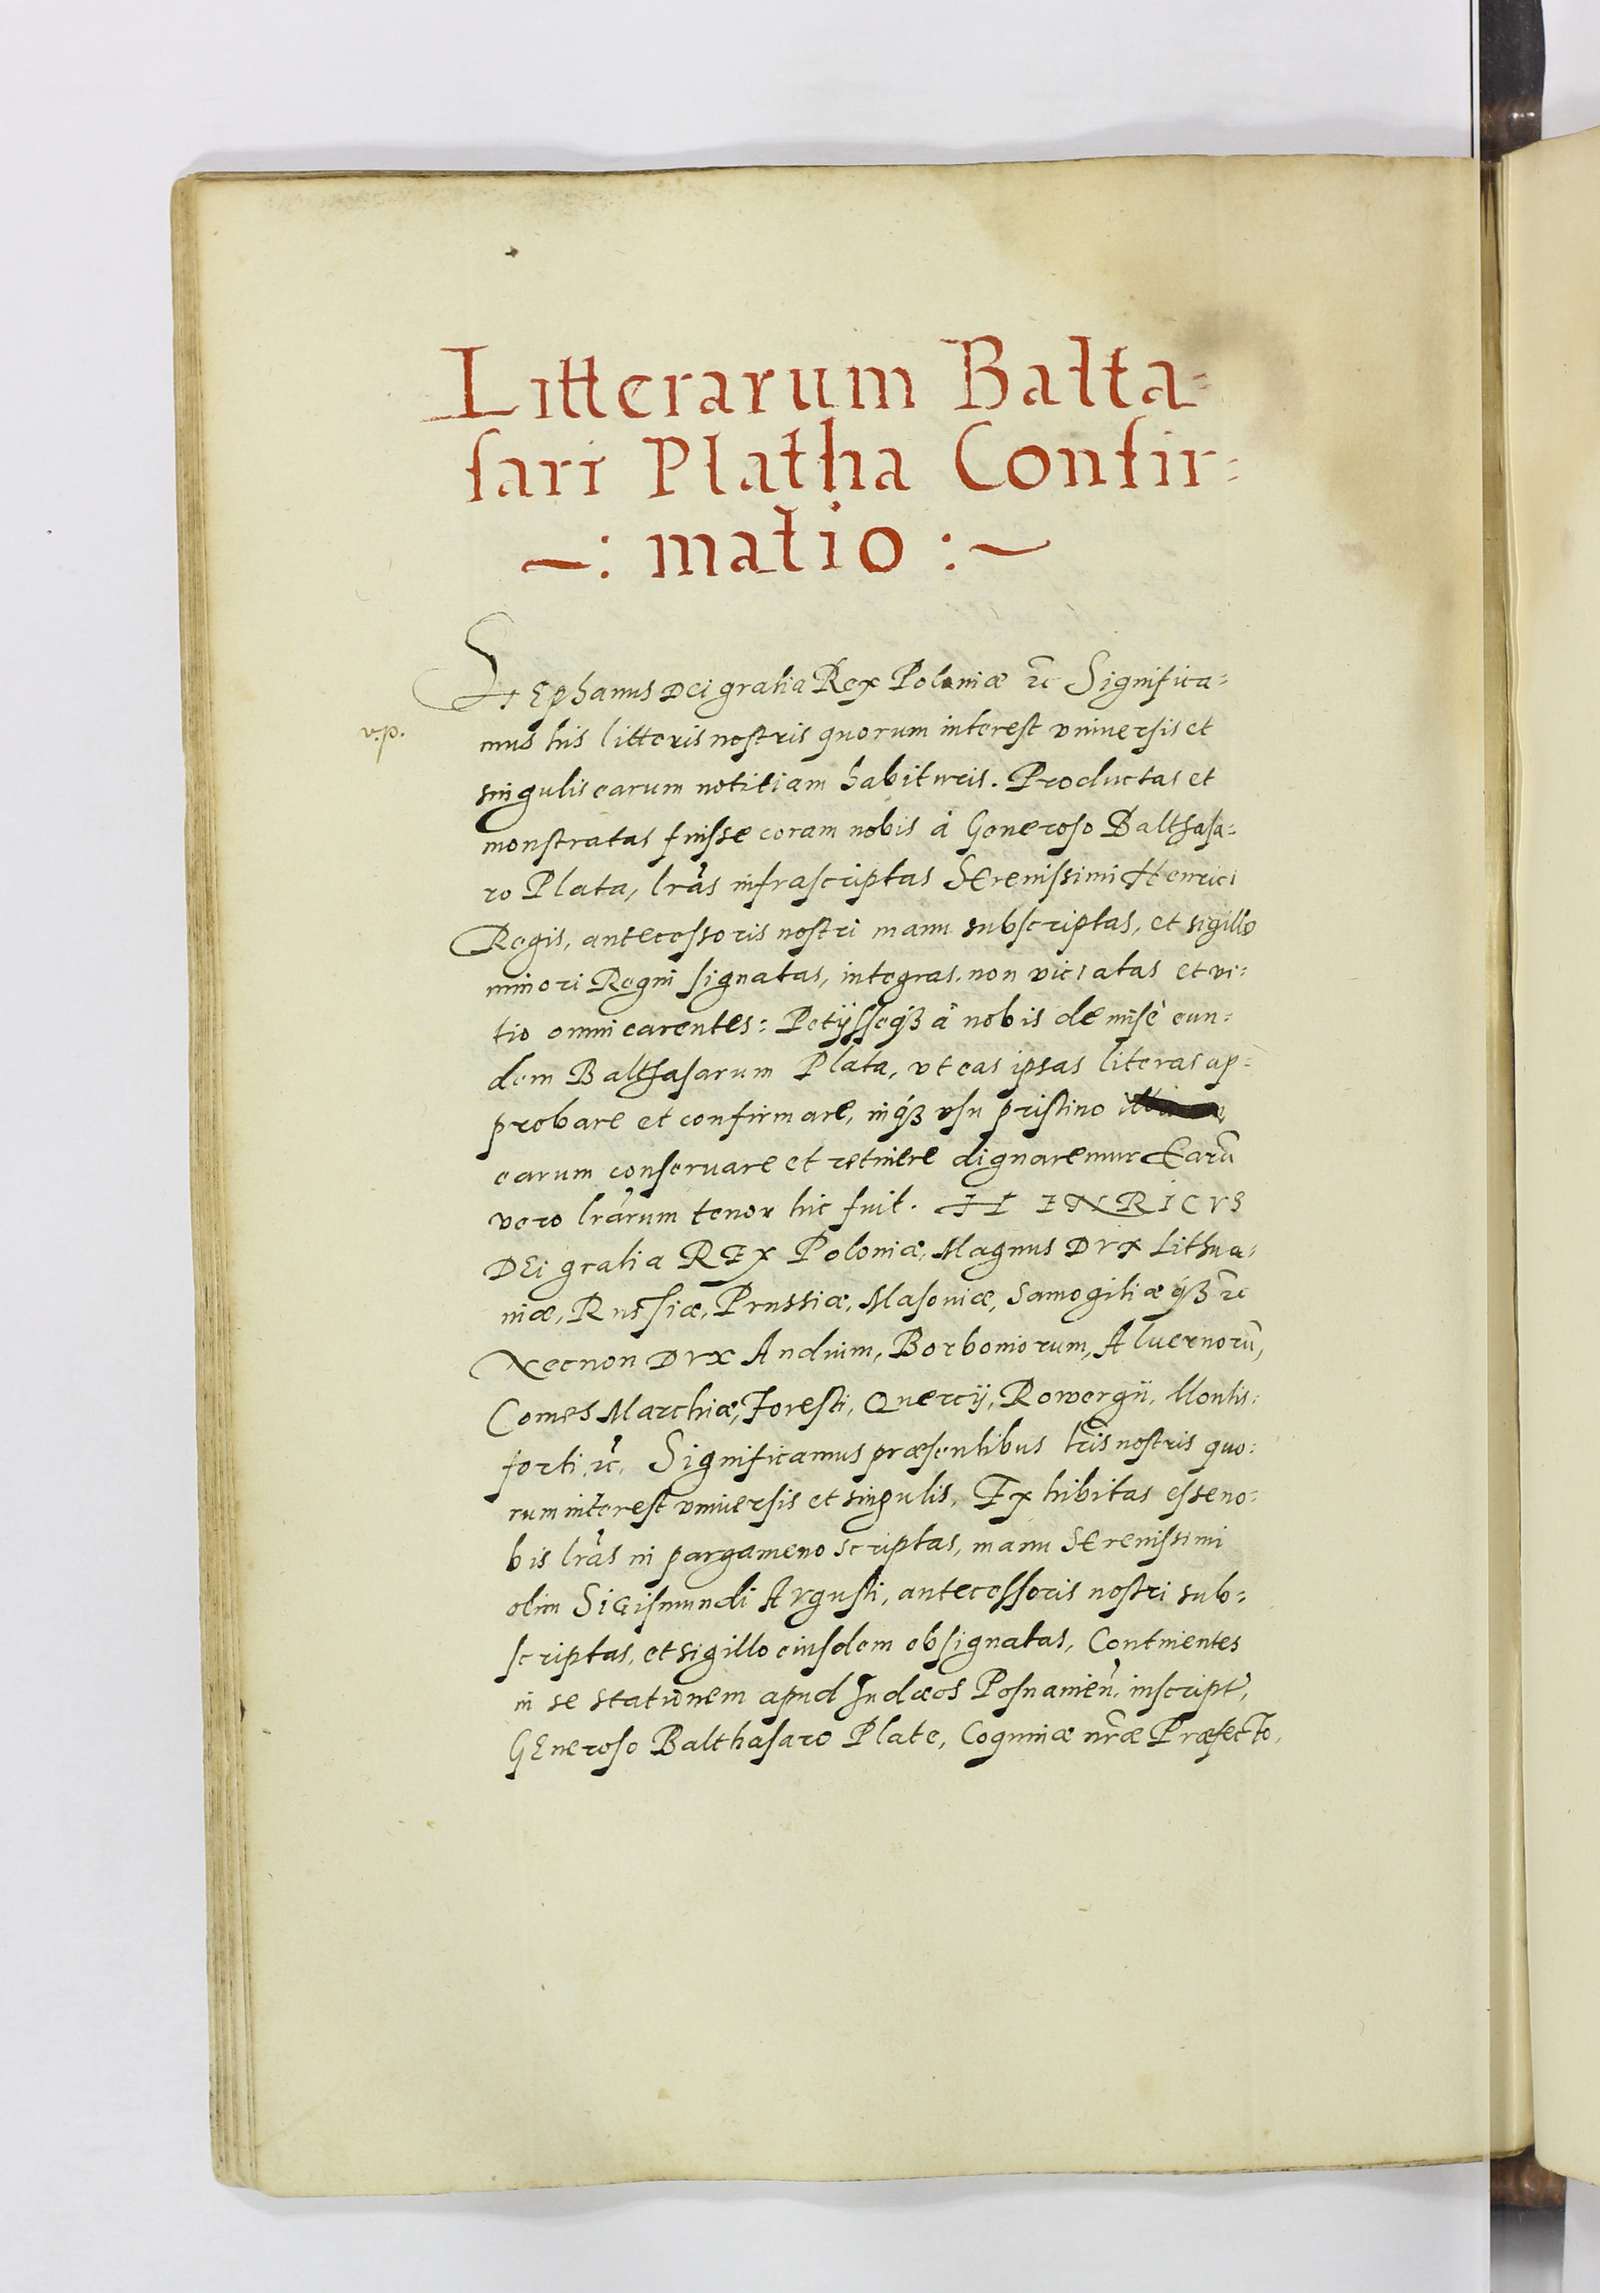 Litterarum Balta=
sari Platha Confir=
~: matio :~
Stephanus Dei gratia Rex Poloniæ ꝛc̃ Significa=
mus his litteris nostris quorum interest vniuersis et
singulis earum notitiam habituris. Productas et
monstratas fuisse coram nobis à Generoso Balthasa=
ro Plata, lrãs infrascriptas SErenissimi Henrici
Regis, antecessoris nostri manu subscriptas, et sigillo
minori Regni signatas, integras, non viciatas et vi=
tio omni carentes: Petijsseqꝫ à nobis demisè eun=
dem Balthasarum Plata, vt eas ipsas literas ap=
probare et confirmare, inqꝫ vsu pristino
earum conseruare et retinere dignaremur Earũ
vero lrãrum tenor hic fuit. HENRICVS
DEi gratia REx Poloniæ, Magnus DVx Lithua=
niæ, Russiæ, Prussiæ, Masouiæ, Samogitiæ qꝫ ꝛc̃
Necnon DVx Andium, Borboniorum, Aluernorũ,
Comes Marchiæ, Foresti, Quercij, Rowergij, Montis=
forti, ꝛc̃. Significamus præsentibus lrĩs nostris quo=
rum interest vniuersis et singulis, Exhibitas esse no=
bis lrãs in pargameno scriptas, manu SErenissimi
olim SiGismundi AVgusti, antecessoris nostri sub=
scriptas, et sigillo eiusdem obsignatas, Continentes
in se stationem apud Judæos Posnanieñ. inscript̃,
GEneroso Balthasaro Plate, Coquinæ nr̃æ Præfecto,